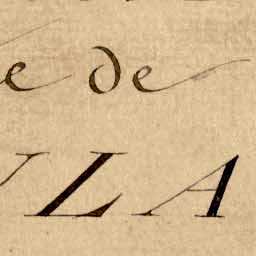 e de
LA